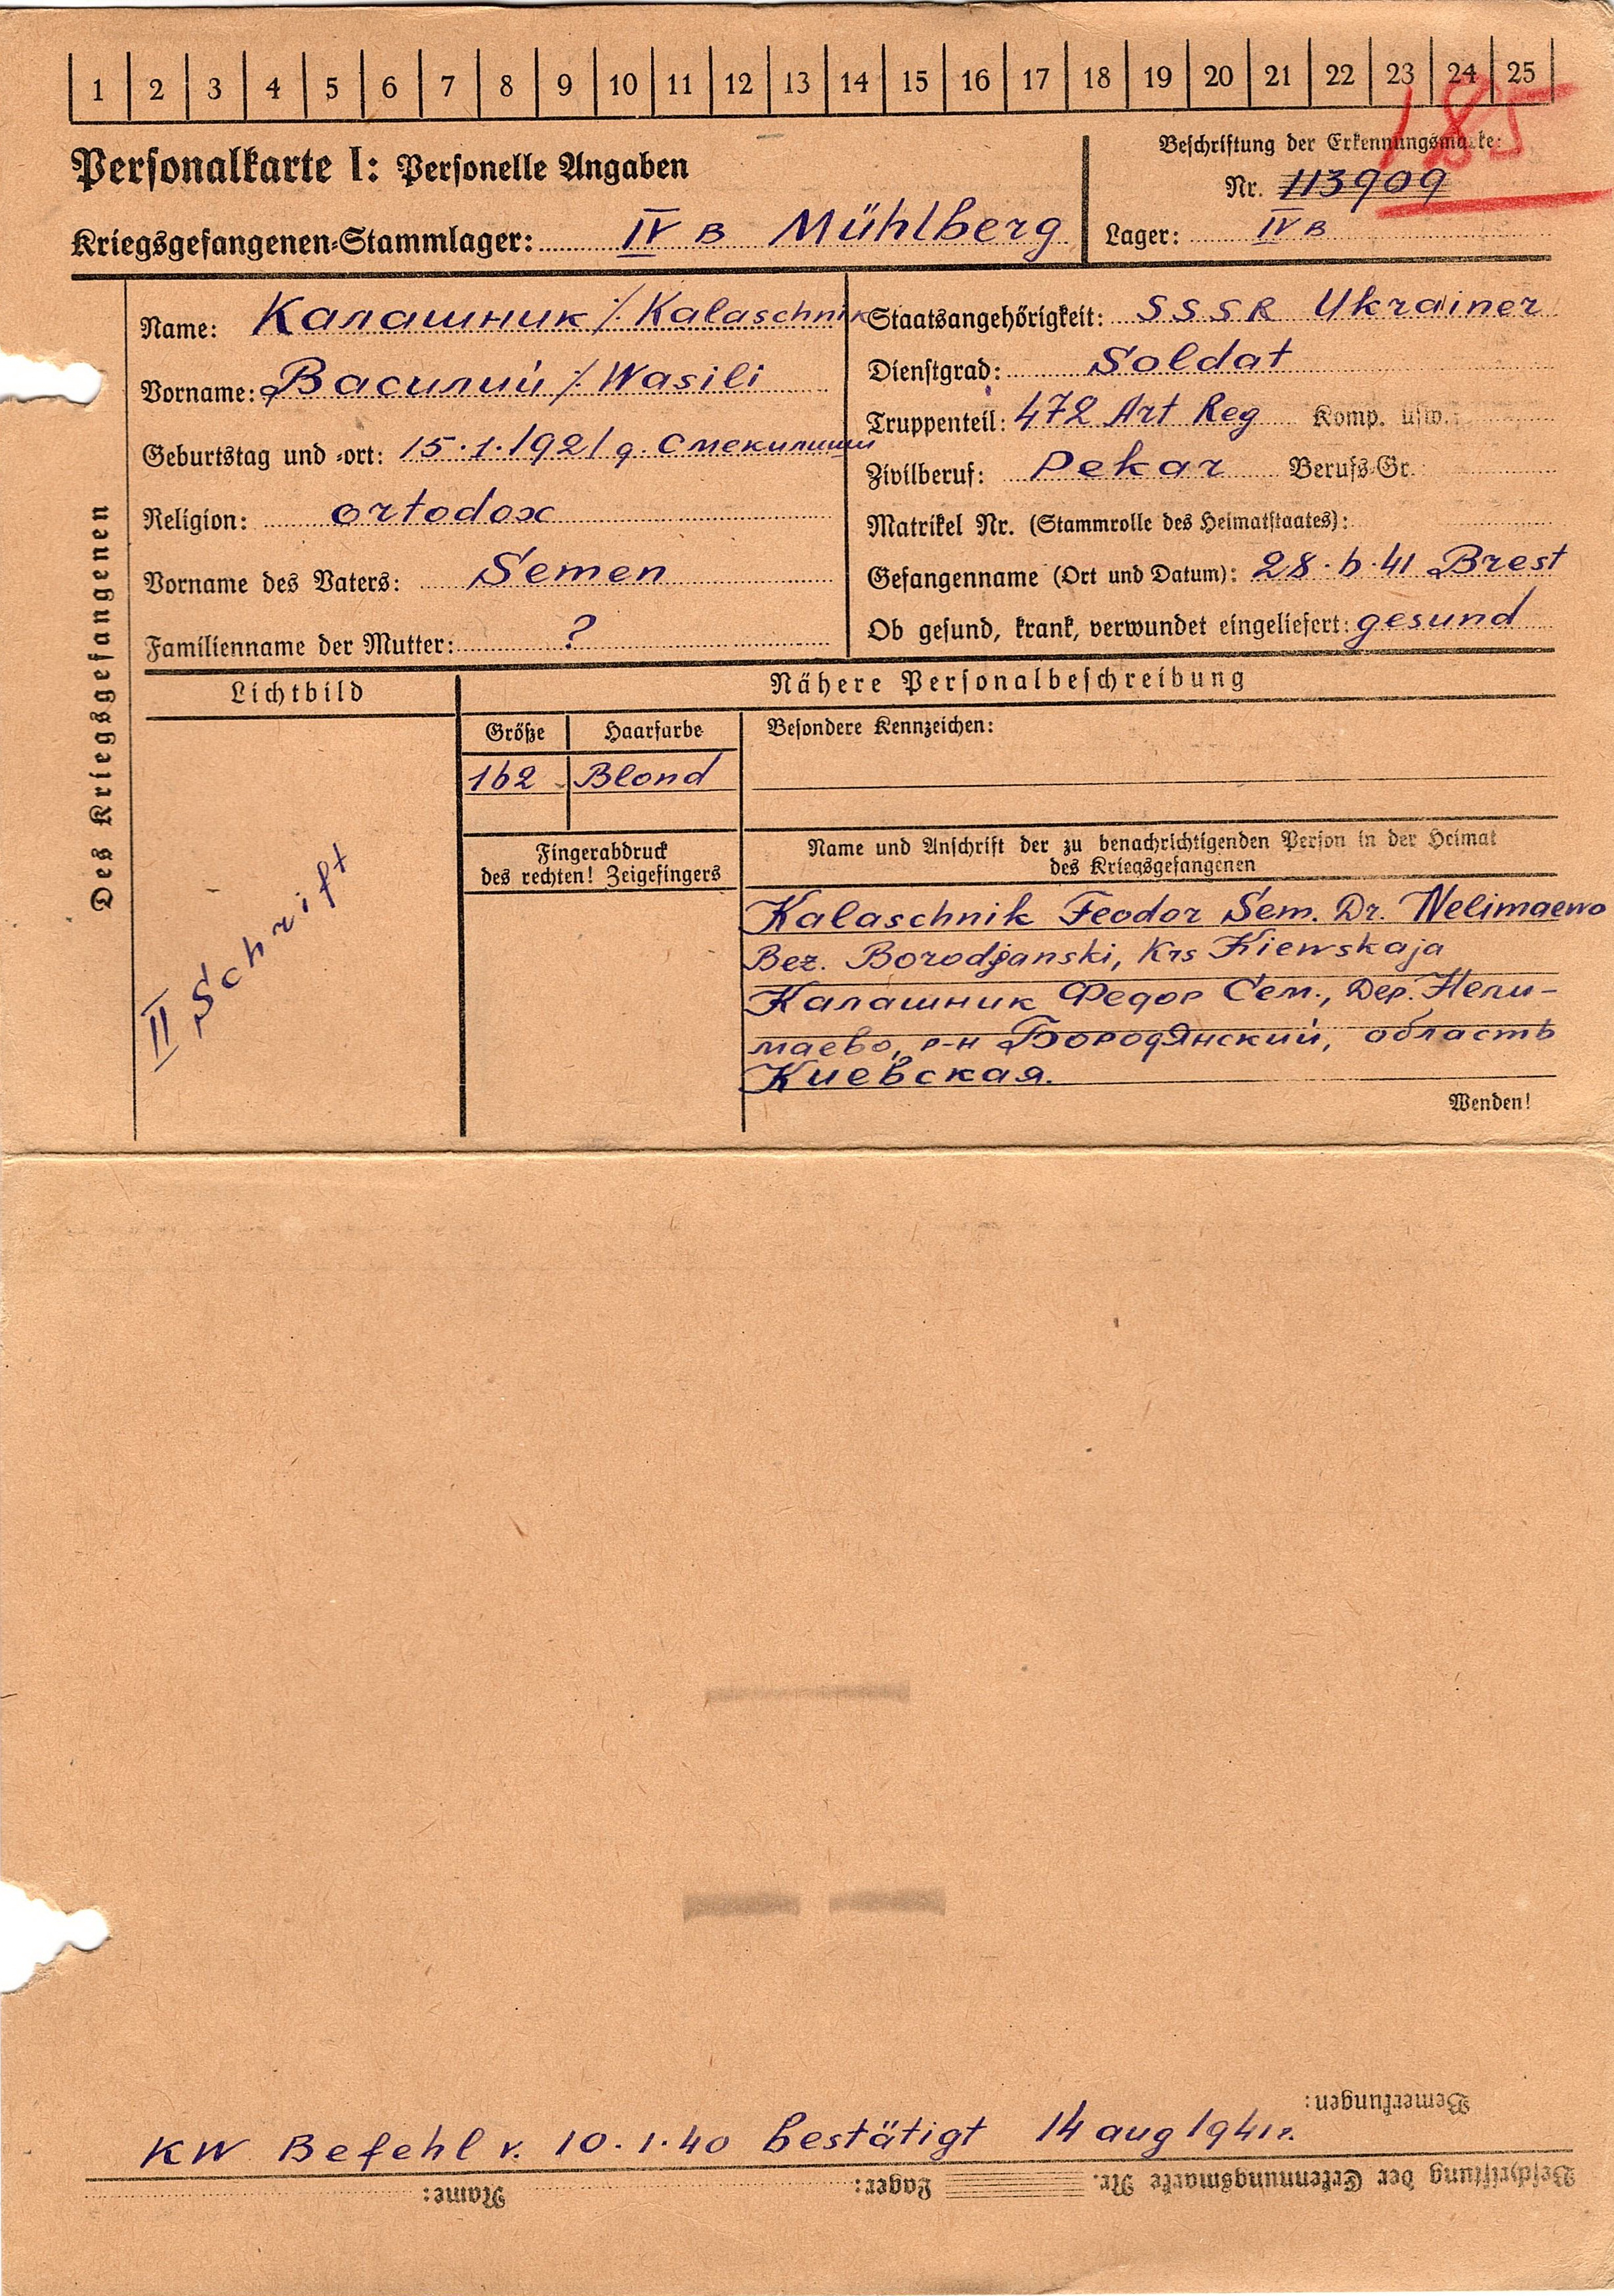 1 2 3 4 5 6 7 8 9 10 11 12 13 14 15 16 17 18 19 20 21 22 23 24 25
185
Personalkarte I: Personelle Angaben
Beschriftung der Erkennungsmarke:
Nr. 113909
Kriegsgefangenen-Stammlager: IV B Mühlberg
Lager: IV B
Des Kriegsgefangenen
Name: Калашник ⁒ Kalaschnik
Vorname: Василий ⁒ Wasili
Geburtstag und -ort: 15.1.1921 д. Смекилиши
Religion: ortodox
Vorname des Vaters: Semen
Familienname der Mutter: ?
Staatsangehörigkeit: SSSR Ukrainer
Dienstgrad: Soldat
Truppenteil: 472 Art Reg Komp. usw.:
Zivilberuf: Pekar Berufs-Gr.:
Matrikel Nr. (Stammrolle des Heimatstaates):
Gefangenname (Ort und Datum): 28.6.41 Brest
Ob gesund, krank, verwundet eingeliefert: gesund
Lichtbild
Nähere Personalbeschreibung
Größe Haarfarbe
162 Blond
Besondere Kennzeichen:
Fingerabdruck
des rechten! Zeigefingers
II Schrift
Name und Anschrift der zu benachrichtigenden Person in der Heimat
des Kriegsgefangenen
Kalaschnik Feodor Sem. Dr. Nelimaewo
Bez. Borodjanski, Krs Kiewskaja
Калашник Федор Сем., Дер. Нели-
маево, р-н Бородянский, область
Киевская.
Wenden!
Bemerkungen:
KW Befehl v. 10.1.40 bestätigt 14 aug 1941г.
Name: Lager: Beschriftung der Erkennungsmarke Nr.